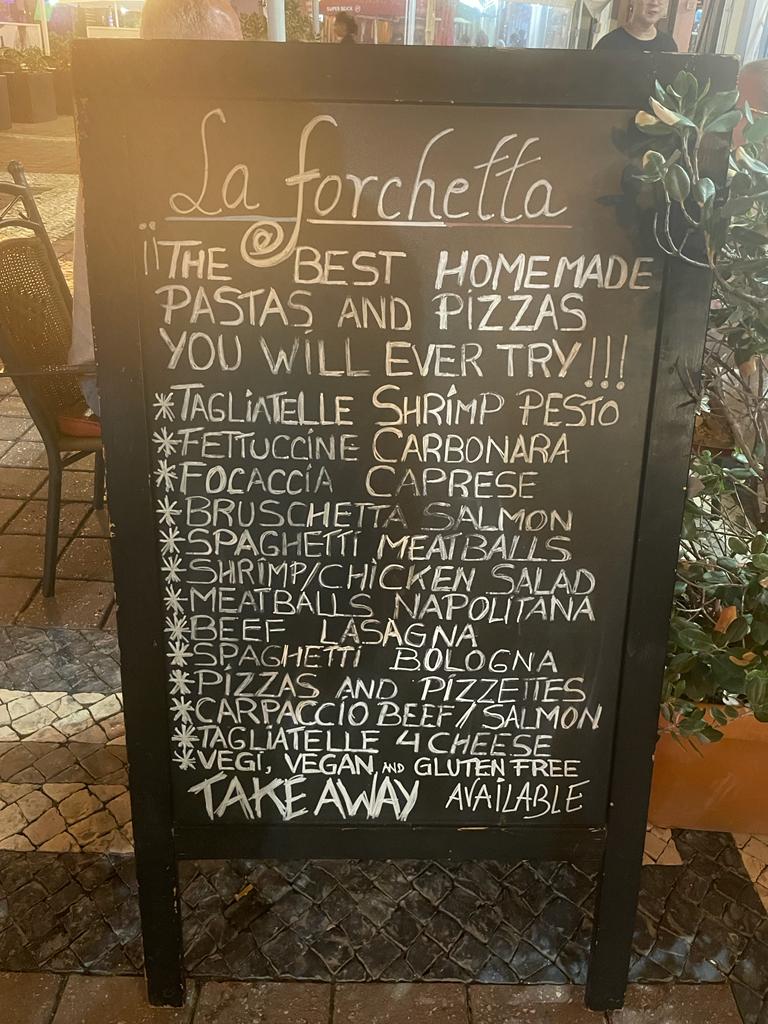 La forchetta
¡¡THE BEST HOMEMADE
PASTAS AND PIZZAS
YOU WILL EVER TRY!!!
*TAGLIATELLE SHRIMP PESTO
*FETTUCCINE CARBONARA
*FOCACCIA CAPRESE
*BRUSCHETTA SALMON
*SPAGHETTI MEATBALLS
*SHRIMP/CHICKEN SALAD
*MEATBALLS NAPOLITANA
*BEEF LASAGNA
*SPAGHETTI BOLOGNA
*PIZZAS AND PIZZETTES
*CARPACCIO BEEF/SALMON
*TAGLIATELLE 4 CHEESE
*VEGI, VEGAN AND GLUTEN FREE
TAKE AWAY AVAILABLE